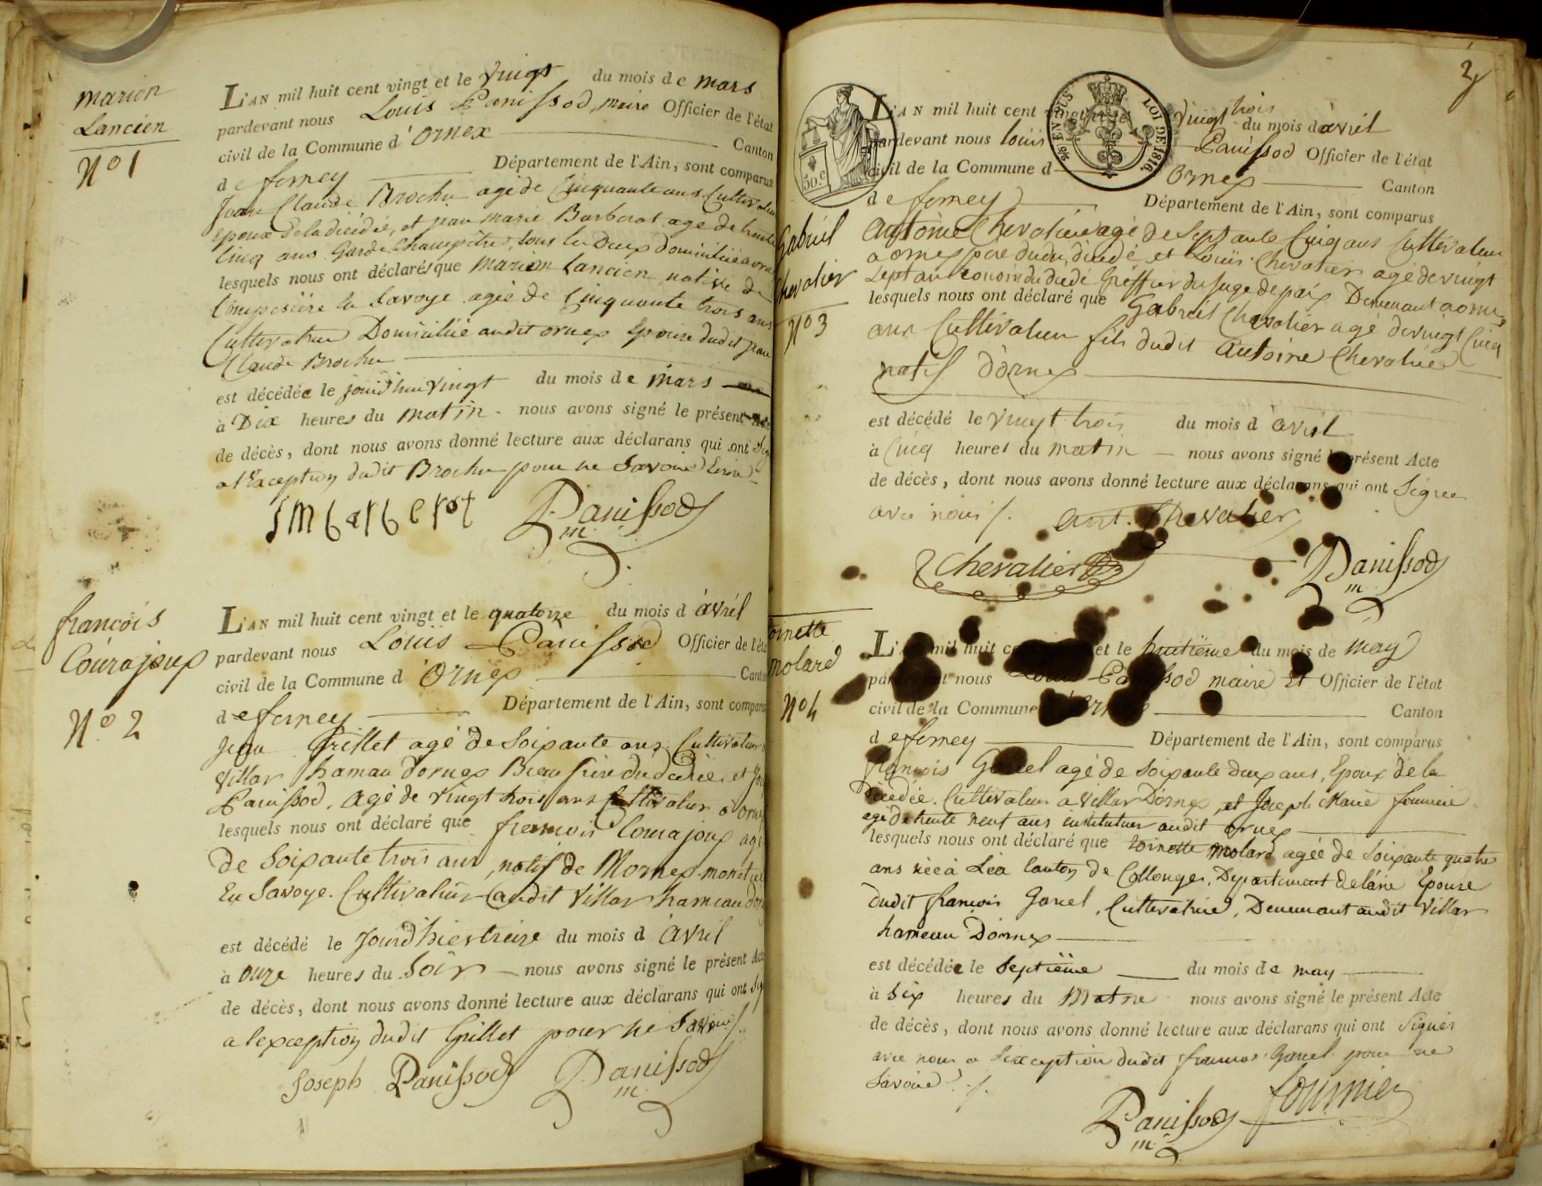 marion
Lancien
N° 1
L'AN mil huit cent vingt et le vingt du mois de mars
pardevant nous Louis Panissod, maire Officier de l'état
civil de la Commune d'Ornex Canton
de ferney Département de l'Ain, sont comparus
Jean Claude Brochu agé de Cinquante ans Cultivateur
Epoux de la décédée, et jean marie Barberat agé de trente
Cinq ans Garde Champêtre, tous les Deux domiciliés a ornex
lesquels nous ont déclarés que marion Lancien native de
en Savoye agée de Cinquante trois ans
Cultivatrice Domiciliée audit ornex Epouse dudit jean
Claude Brochu
est décédée le jourd'hui vingt du mois de mars
à Dix heures du matin - nous avons signé le présent
de décès, dont nous avons donné lecture aux déclarans qui ont
a l'Exception dudit Brochu pour ne Savoir
J M barberat Panissod
m.
françois
Courajoux
N° 2
L'AN mil huit cent vingt et le quatorze du mois d'avril
pardevant nous Louis Panissod Officier de l'état
civil de la Commune d'Ornex Canton
de ferney Département de l'Ain, sont comparus
jean Grillet agé de Soixante ans Cultivateur
villar hameau d'ornex Beau frère du décédé et
Panissod, agé de vingt trois ans Cultivateur a ornex
lesquels nous ont déclaré que françois Courajoux agé
de Soixante trois ans, natif de Mornex
En Savoye. Cultivateur audit Villar hameau
est décédé le jourd'hier treize du mois d'avril
à onze heures du Soir - nous avons signé le présent Acte
de décès, dont nous avons donné lecture aux déclarans qui ont
a l'exception dudit Grillet pour ne Savoir
Joseph Panissod Panissod
m.
2
50 c
TIMBRE
LOI DE 1816
Gabriel
Chevalier
N° 3
L'AN mil huit cent vingt trois du mois d'avril
pardevant nous louis Panissod Officier de l'état
civil de la Commune d Ornex Canton
de ferney Département de l'Ain, sont comparus
Antoine Chevalier agé de Septante Cinq ans Cultivateur
a ornex père dudit décédé et Louis Chevalier agé de vingt
Sept ans cousin du décédé Greffier du juge de paix Demeurant a ornex
lesquels nous ont déclaré que Gabriel Chevalier agé de vingt Cinq
ans Cultivateur fils dudit Antoine Chevalier
natif d'ornex
est décédé le vingt trois du mois d'avril
à Cinq heures du matin - nous avons signé le présent Acte
de décès, dont nous avons donné lecture aux déclarans qui ont Signé
avec nous /. ant. Chevalier
Chevalier Panissod
m.
toinette
molard
N° 4
L'AN mil huit cent et le huitième du mois de may
pardevant nous Louis Panissod maire Et Officier de l'état
civil de la Commune d'Ornex Canton
de ferney Département de l'Ain, sont comparus
françois Gonel agé de Soixante deux ans, Epoux de la
décédée. Cultivateur a villar d'ornex et Joseph Marie fournier
agé de trente neuf ans instituteur audit ornex
lesquels nous ont déclaré que toinette molard agée de Soixante quatre
ans née a Léa Canton de Collonges, Departement de l'ain Epouse
dudit françois Gonel, Cultivatrice, Demeurant audit Villar
hameau D'ornex
est décédée le Septième du mois de may
à Six heures du Matin nous avons signé le présent Acte
de décès, dont nous avons donné lecture aux déclarans qui ont Signés
avec nous a l'exception dudit françois Gonel pour ne
Savoir /.
Panissod fournier
m.